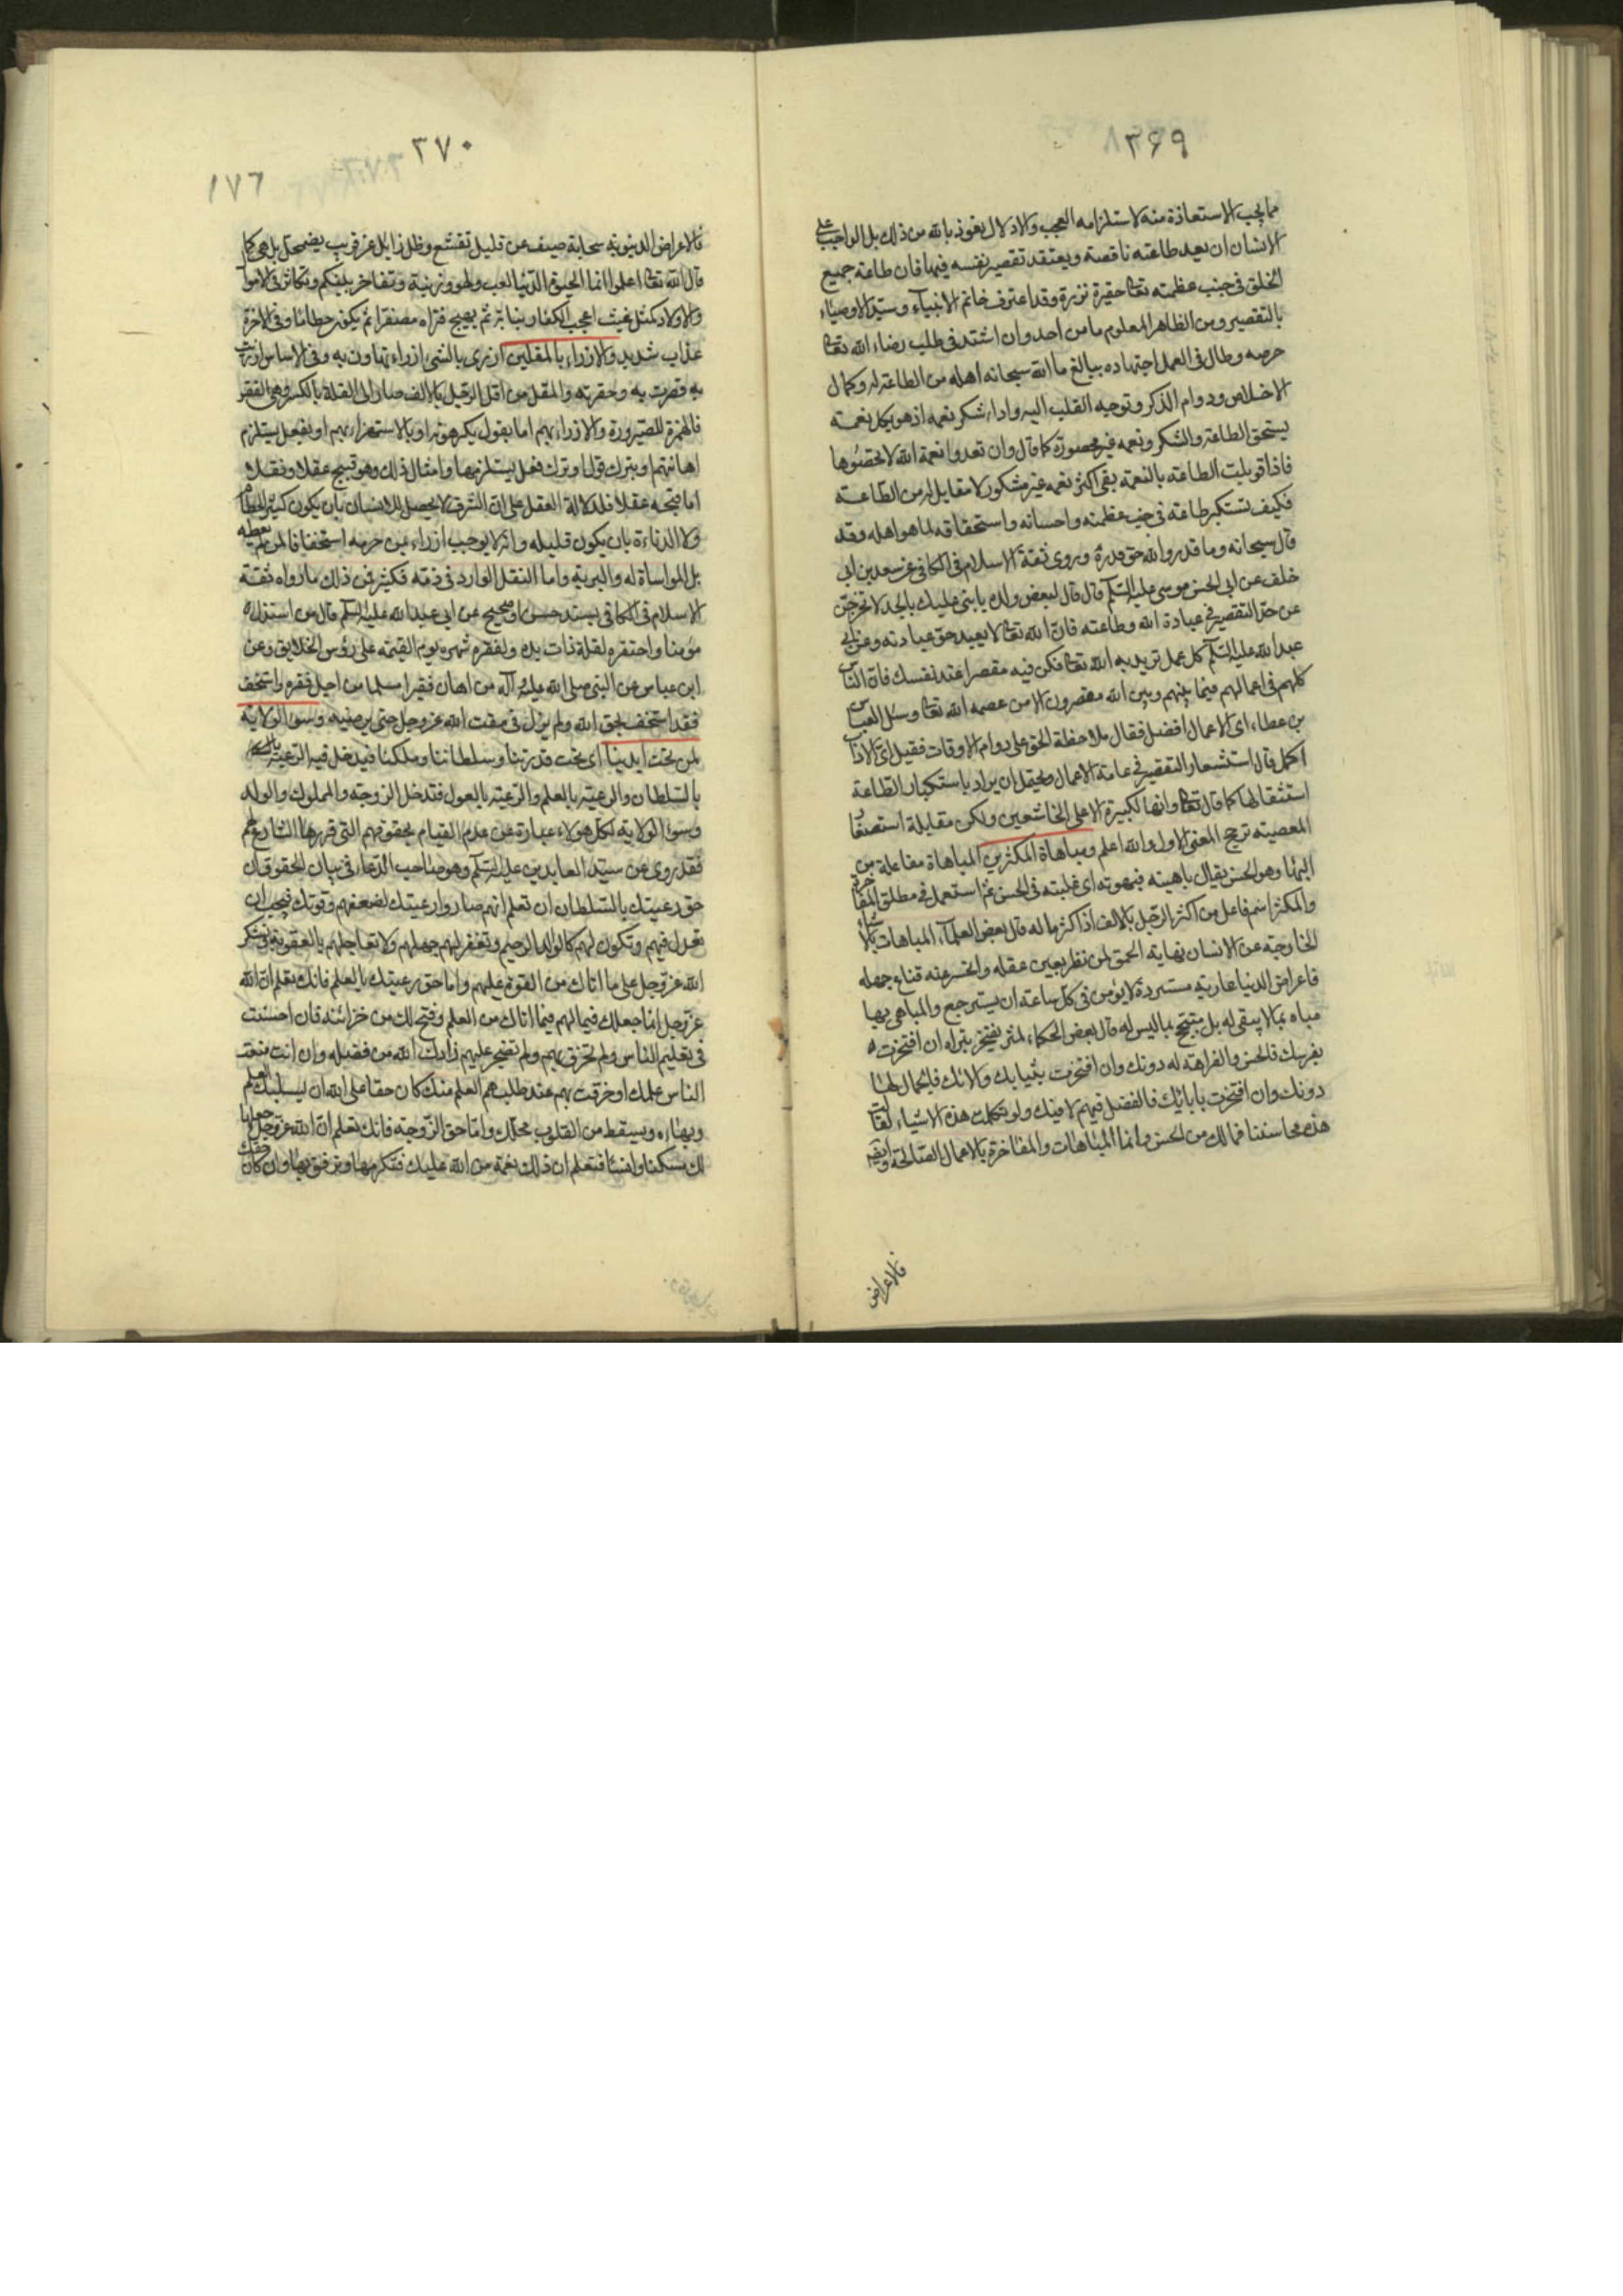 ٣٦٩
مما يجب الاستعاذة منه لاستلزامه العجب والادلال نعوذ بالله من ذلك بل الواجب على
الانسان ان يعد طاعته ناقصة ويعتقد تقصير نفسه فيها فان طاعة جميع
الخلق فى جنب عظمته تعالى حقيرة نزرة وقد اعترف خاتم الانبياء وسيد الاوصياء
بالتقصير ومن الظاهر المعلوم ما من احد وان اشتد فى طلب رضاء الله تعالى
حرصه وطال فى العمل اجتهاده ببالغ ما الله سبحانه اهله من الطاعة له وكمال
الاخلاص ودوام الذكر وتوجيه القلب اليه واداء شكر نعمه اذ هو بكل نعمة
يستحق الطاعة والشكر ونعمه غير محصورة كما قال وان تعدوا نعمة الله لا تحصوها
فاذا قوبلت الطاعة بالنعمة بقى اكثر نعمه غير مشكور لا مقابل له من الطاعة
فكيف تستكبر طاعة فى جنب عظمته واحسانه واستحقاقه لما هو اهله وقد
قال سبحانه وما قدروا الله حق قدره وروى ثقة الاسلام فى الكافى عن سعد بن ابى
خلف عن ابى الحسن موسى عليه السلم قال قال لبعض ولده يا بنى عليك بالجد لا تخرجن
عن حد التقصير فى عبادة الله وطاعته فان الله تعالى لا يعبد حق عبادته وعن ابى
عبد الله عليه السلم كل عمل تريد به الله تعالى فكن فيه مقصرا عند نفسك فان الناس
كلهم فى اعمالهم فيما بينهم وبين الله مقصرون الا من عصمه الله تعالى وسئل العباس
بن عطاء اى الاعمال افضل فقال ملاحظة الحق على دوام الاوقات فقيل اى الاداب
اكمل قال استشعار التقصير فى عامة الاعمال ويحتمل ان يراد باستكبار الطاعة
استثقالها كما قال تعالى وانها لكبيرة الا على الخاشعين ولكن مقابلة استصغار
المعصية ترجح المعنى الاول والله اعلم ومباهاة المكثرين المباهاة مفاعلة من
البهاء وهو الحسن يقال باهيته فبهوته اى غلبته فى الحسن ثم استعمل فى مطلق المفاخرة
والمكثر اسم فاعل من اكثر الرجل بالالف اذا كثر ماله قال بعض العلماء المباهات بالاشياء
الخارجة عن الانسان نهاية الحمق لمن نظر بعين عقله وانحسر عنه قناع جهله
فاعراض الدنيا عارية مستردة لا يؤمن فى كل ساعة ان يسترجع والمباهى بها
مباه بما لا يبقى له بل متبجح بما ليس له قال بعض الحكماء لمثر يفتخر بثراه ان افتخرت
بفرسك فالحسن والفراهة له دونك وان افتخرت بثيابك والاتك فالجمال لها
دونك وان افتخرت بابائك فالفضل فيهم لا فيك ولو تكلمت هذه الاشياء لقالت
هذه محاسننا فما لك من الحسن وانما المباهات والمفاخرة بالاعمال الصالحة
فالاعراض
٣٧٠
١٧٦
فالاعراض الدنيوية سحابة صيف عن قليل تقشع وظل زايل عن قريب يضمحل بل هى كما
قال الله تعالى اعلموا انما الحيوة الدنيا لعب ولهو وزينة وتفاخر بينكم وتكاثر فى الاموال
والاولاد كمثل غيث اعجب الكفار نباته ثم يهيج فتراه مصفرا ثم يكون حطاما وفى الاخرة
عذاب شديد والازراء بالمقلين ازرى بالشئ ازراء تهاون به وفى الاساس ازريت
به قصرت به وحقرته والمقل من اقل الرجل بالالف صار الى القلة بالكسر وهى الفقر
فالهمزة للصيرورة والازراء بهم اما بقول يكرهونه او بالاستهزاء بهم او بفعل يستلزم
اهانتهم او بترك قول او ترك فعل يستلزمها وامثال ذلك وهو قبيح عقلا ونقلا
اما قبحه عقلا فلدلالة العقل على ان الشرف لا يحصل للانسان بان يكون كثير الحطام
ولا الدناءة بان يكون قليله وانه لا يوجب ازراء من حرمه استخفافا لمن لم يعطه
بل المواساة له والبر به واما النقل الوارد فى ذمه فكثير فمن ذلك ما رواه ثقة
الاسلام فى الكافى بسند حسن او صحيح عن ابى عبد الله عليه السلم قال من استذل
مؤمنا واحتقره لقلة ذات يده ولفقره شهره يوم القيمة على رؤس الخلايق وعن
ابن عباس عن النبى صلى الله عليه وآله من اهان فقيرا مسلما من اجل فقره واستخف
فقد استخف بحق الله ولم يزل فى مقت الله عز وجل حتى يرضيه وسوء الولاية
لمن تحت ايدينا اى تحت قدرتنا وسلطاننا وملكنا فيدخل فيه الرعية
بالسلطان والرعية بالعلم والرعية بالعول فتدخل الزوجة والمملوك والولد
وسوء الولاية لكل هولاء عبارة عن عدم القيام بحقوقهم التى قررها الشارع لهم
فقد روى عن سيد العابدين عليه السلم وهو صاحب الدعاء فى بيان الحقوق ان
حق رعيتك بالسلطان ان تعلم انهم صاروا رعيتك لضعفهم وقوتك فيجب ان
تعدل فيهم وتكون لهم كالوالد الرحيم وتغفر لهم جهلهم ولا تعاجلهم بالعقوبة وتشكر
الله عز وجل على ما اتاك من القوة عليهم واما حق رعيتك بالعلم فانك تعلم ان الله
عز وجل انما جعلك فيما لهم فيما اتاك من العلم وفتح لك من خزائنه فان احسنت
فى تعليم الناس ولم تخرق بهم ولم تضجر عليهم زادك الله من فضله وان انت منعت
الناس علمك او خرقت بهم عند طلبهم العلم منك كان حقا على الله ان يسلبك العلم
وبهاءه ويسقط من القلوب محلك واما حق الزوجة فانك تعلم ان الله عز وجل جعلها
لك سكنا وانسا فتعلم ان ذلك نعمة من الله عليك فتكرمها وترفق بها وان كان حقك